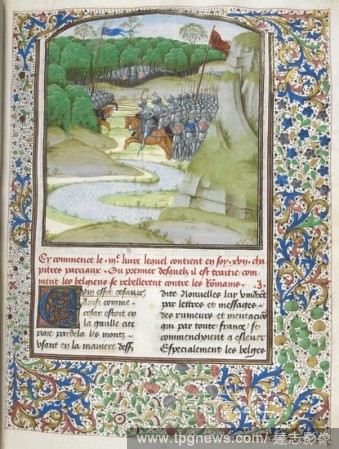 Cy commence le .iije. liure lequel contient en soy .xxv. cha
pitres parciaux. Ou premier desquelz il est traitie com
ment les belgiens se rebellerent contre les Romains. .j.
cesar estoit en
la gaulle cite
riore par dela les monts
usant en la maniere dess
dite Nouvelles luy vindrent
par lettres et messages
des rumeurs et mutacions
qui par toute france se
commencoient a esleuer
Especialement les belges
www.tpgnews.com/達志影像